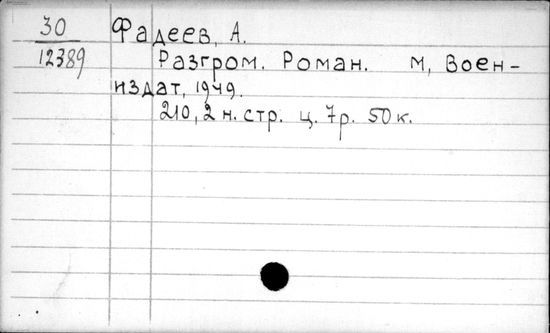 30 Фадеев, А.
12389 Разгром. Роман. М, Воен-
издат, 1949.
210, 2 н. стр. ц. 7р. 50 к.